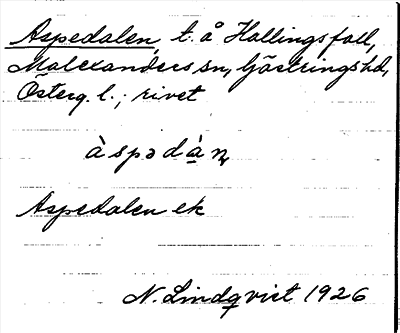 Aspedalen, t. å Hallingsfall,
Malexanders sn, Göstrings hd,
Österg. l.; rivet
àspədàn
Aspedalen ek
N. Lindqvist 1926